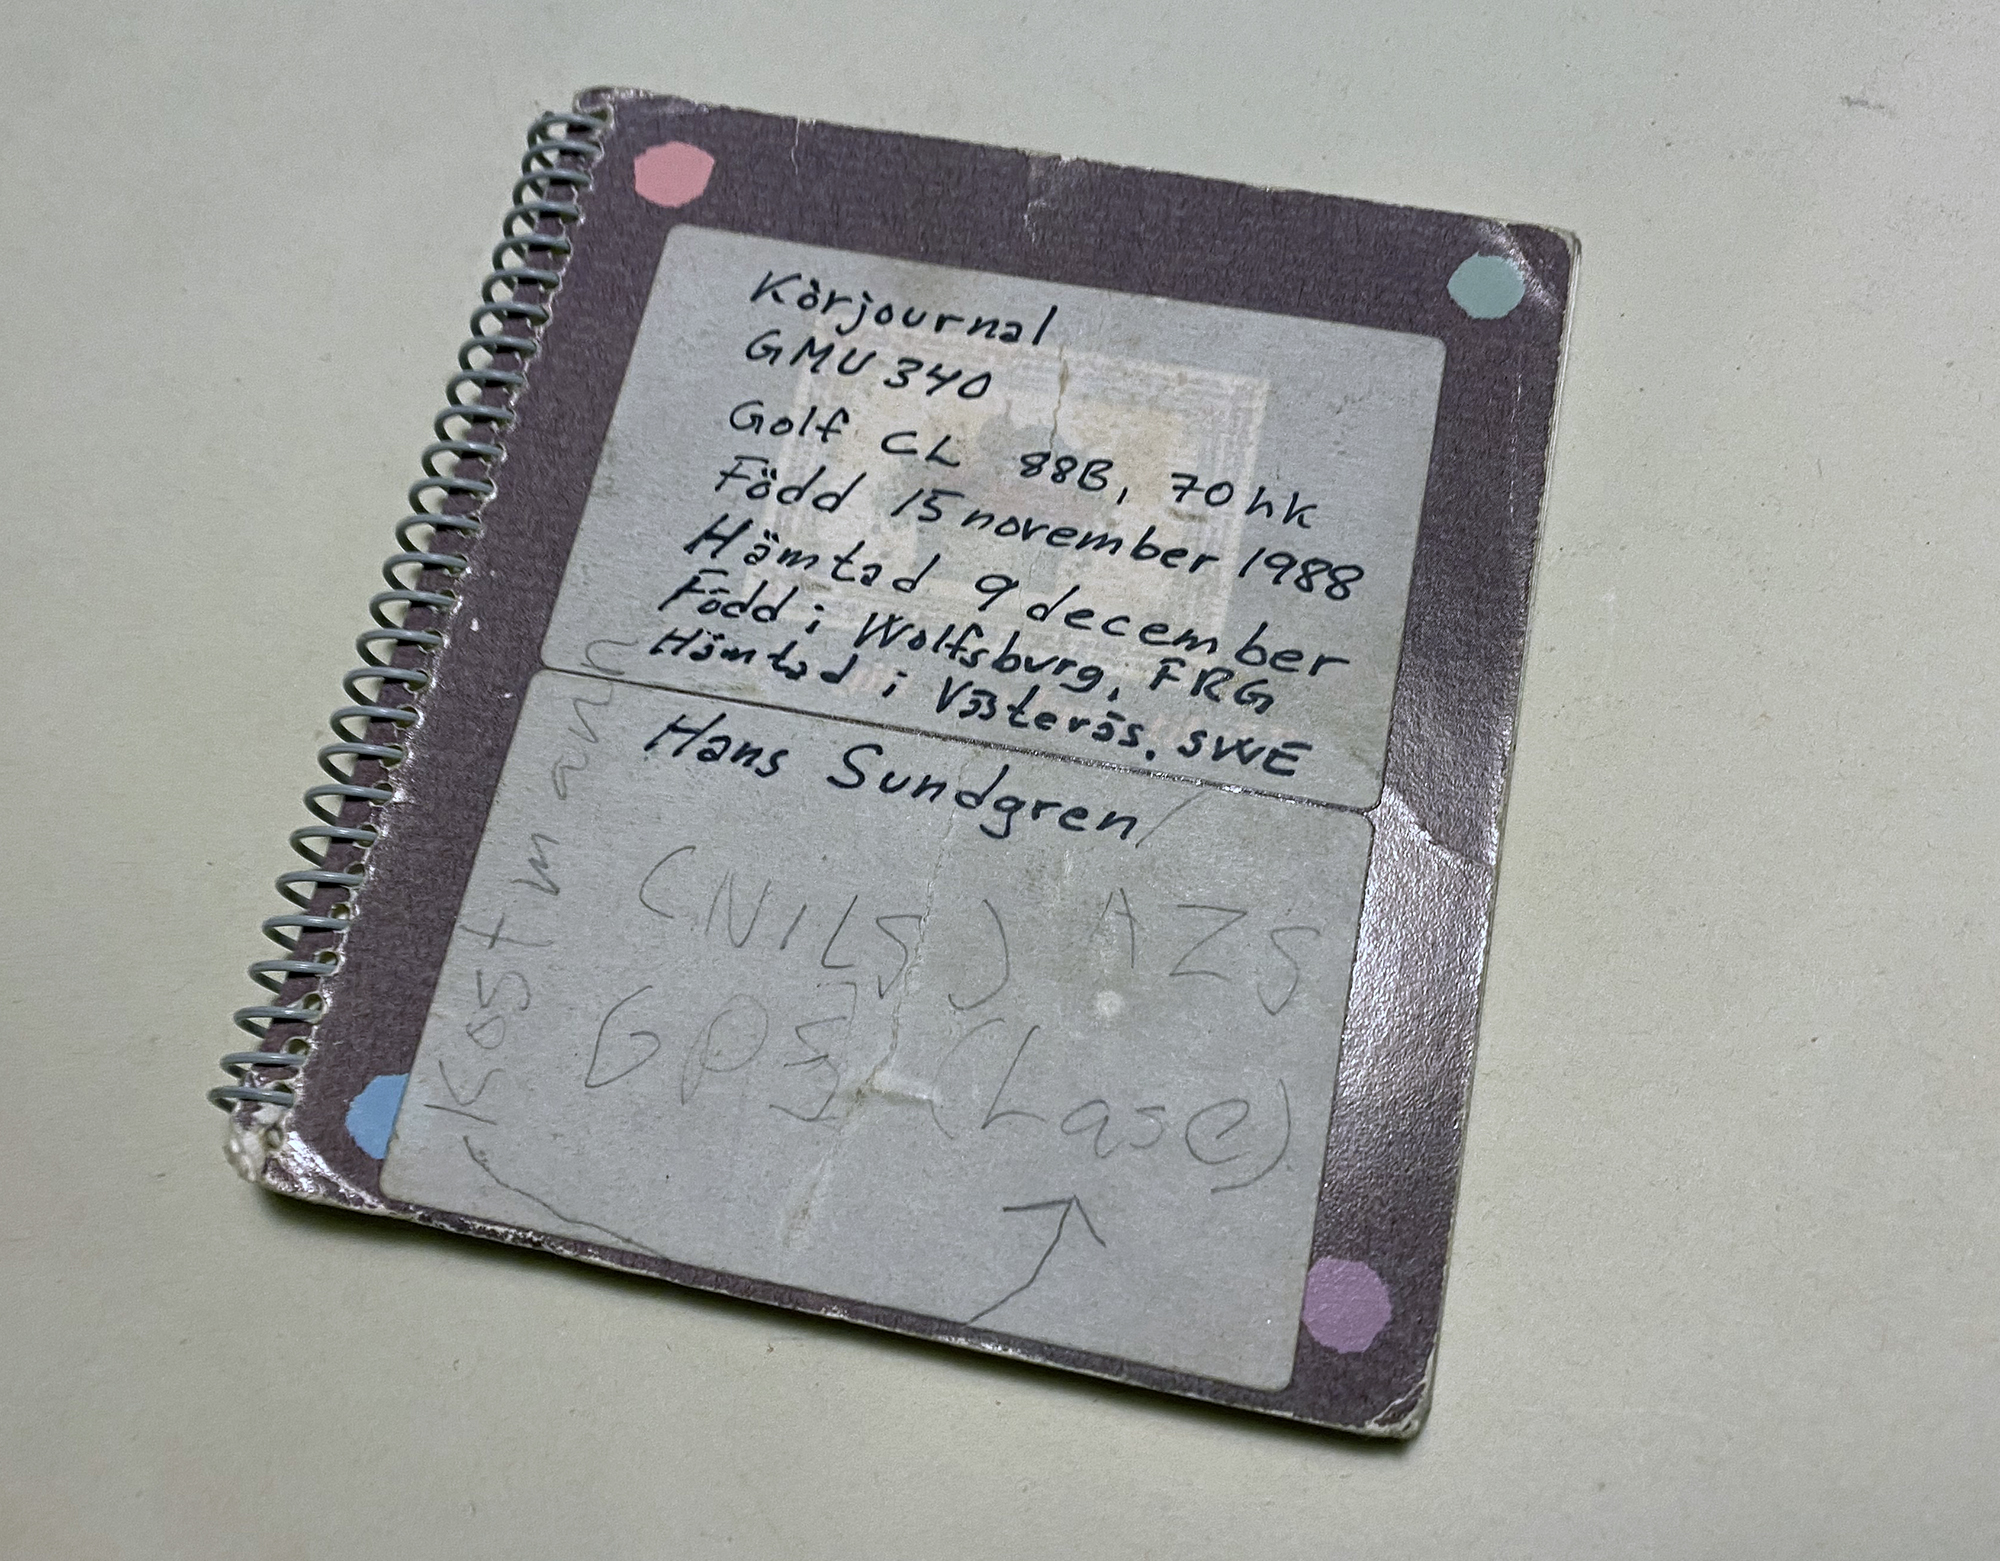 Körjournal
GMU 340
Golf CL 88B, 70 hk
Född 15 november 1988
Hämtad 9 december
Född i Wolfsburg, FRG
Hämtad i Västerås, SWE
Hans Sundgren
(NILS) AZS
(Lase)
Kostmann